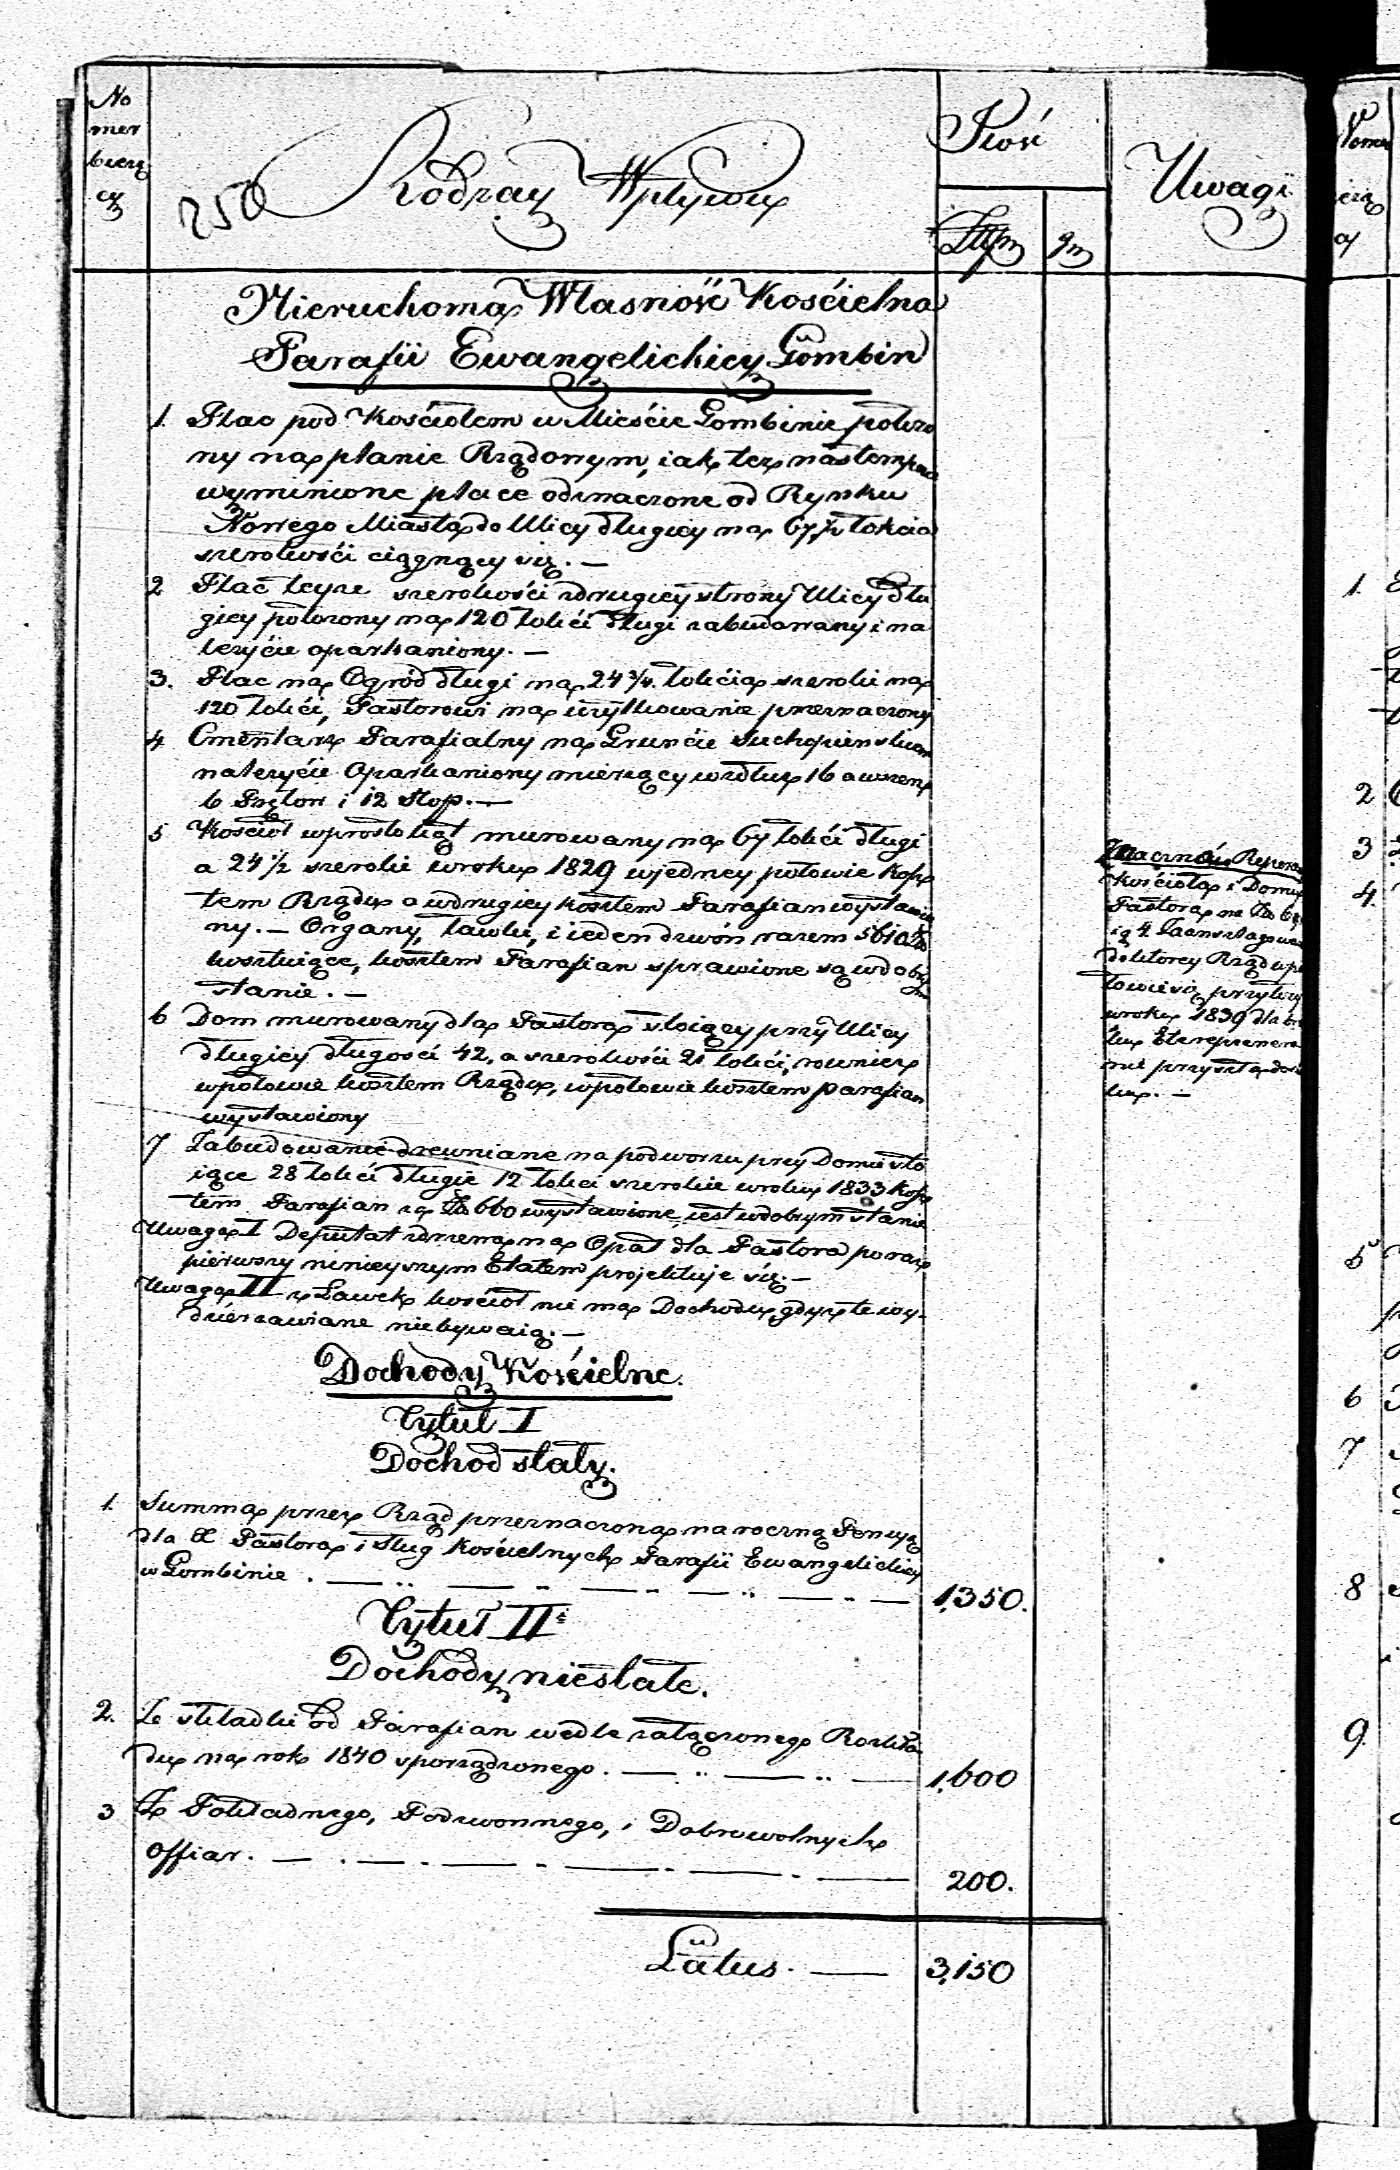 No
mer
bierzą
cy
250
Rodzay Wpływu
Ilość
Złp gr
Uwagi
Nieruchoma Własność Kościelna
Parafii Ewangelickiey Gombin
1. Plac pod Kościołem w Mieście Gombinie położo
ny na planie Rządowym, iak też następnie
wyminione place odznaczone od Rynku
Nowego Miasta do Ulicy długiey na 67½ łokcia
szerokości ciągnący się. —
2 Plac teyże szerokości z drugiey strony Ulicy dłu
giey położony na 120 łokci długi zabudowany i na
leżycie oparkaniony. —
3. Plac na Ogród długi na 24¾ łokcia szeroki na
120 łokci, Pastorowi na użytkowanie przeznaczony
4 Cmentarz Parafialny na Gruncie
należycie Oparkaniony mierzący wzdłuż 16 a wszerz
6 Prętów i 12 Stop. —
5 Kościół w prostokąt murowany na 67 łokci długi
a 24½ szeroki w roku 1829 w jedney połowie kosz
tem Rządu a w drugiey kosztem Parafian wystawio
ny. — Organy, ławki, i ieden dzwón razem 5610
kosztuiące, kosztem Parafian sprawione są w dobrym
stanie. —
6 Dom murowany dla Pastora stoiący przy Ulicy
długiey długości 42, a szerokości 21 łokci, rownież
w połowie kosztem Rządu, w połowie kosztem parafian
wystawiony
7 Zabudowanie drewniane na podworzu przy Domu sto
iące 28 łokci długie 12 łokci szerokie w roku 1833 kosz
tem Parafian za Zł 660 wystawione, iest w dobrym stanie
Uwaga I Deputat drzewa na Opał dla Pastora po raz
pierwszy ninieyszym Etatem projektuje się. —
Uwaga II z Ławek kościół nie ma Dochodu, gdyż te wy-
dzierzawiane niebywaią. —
Znaczna Repera
Kościoła i Domu
Pastora na Zł
do ktorey Rząd
w roku 1839 dla
nie przyszła do
ku. —
Dochody Kościelne.
Tytuł I
Dochod stały.
1. Summa przez Rząd przeznaczona na roczną Pensyą
dla X Pastora i Sług Kościelnych Parafii Ewangelickiey
w Gombinie . — 1,350.
Tytuł II
Dochody niestałe.
2. Ze składki od Parafian wedle załączonego Rozkła
du na rok 1840 sporządzonego. — 1,600
3 Z Pokładnego, Podzwonnego, i Dobrowolnych
Offiar. — 200.
Latus. — 3,150
1.
2
3
4.
5
6
7
8
9.